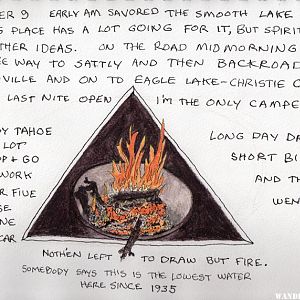 ER 9 EARLY AM SAVORED THE SMOOTH LAKE
S PLACE HAS A LOT GOING FOR IT, BUT SPIRI
THER IDEAS. ON THE ROAD MIDMORNING
E WAY TO SATTLY AND THEN BACKROAD
VILLE AND ON TO EAGLE LAKE-CHRISTIE C
LAST NITE OPEN I'M THE ONLY CAMPE
Y TAHOE
LOT
P + GO
WORK
R FIVE
SE
NE
CAR
LONG DAY DR
SHORT BI
AND TH
WEN
NOTHEN LEFT TO DRAW BUT FIRE.
SOMEBODY SAYS THIS IS THE LOWEST WATER
HERE SINCE 1935